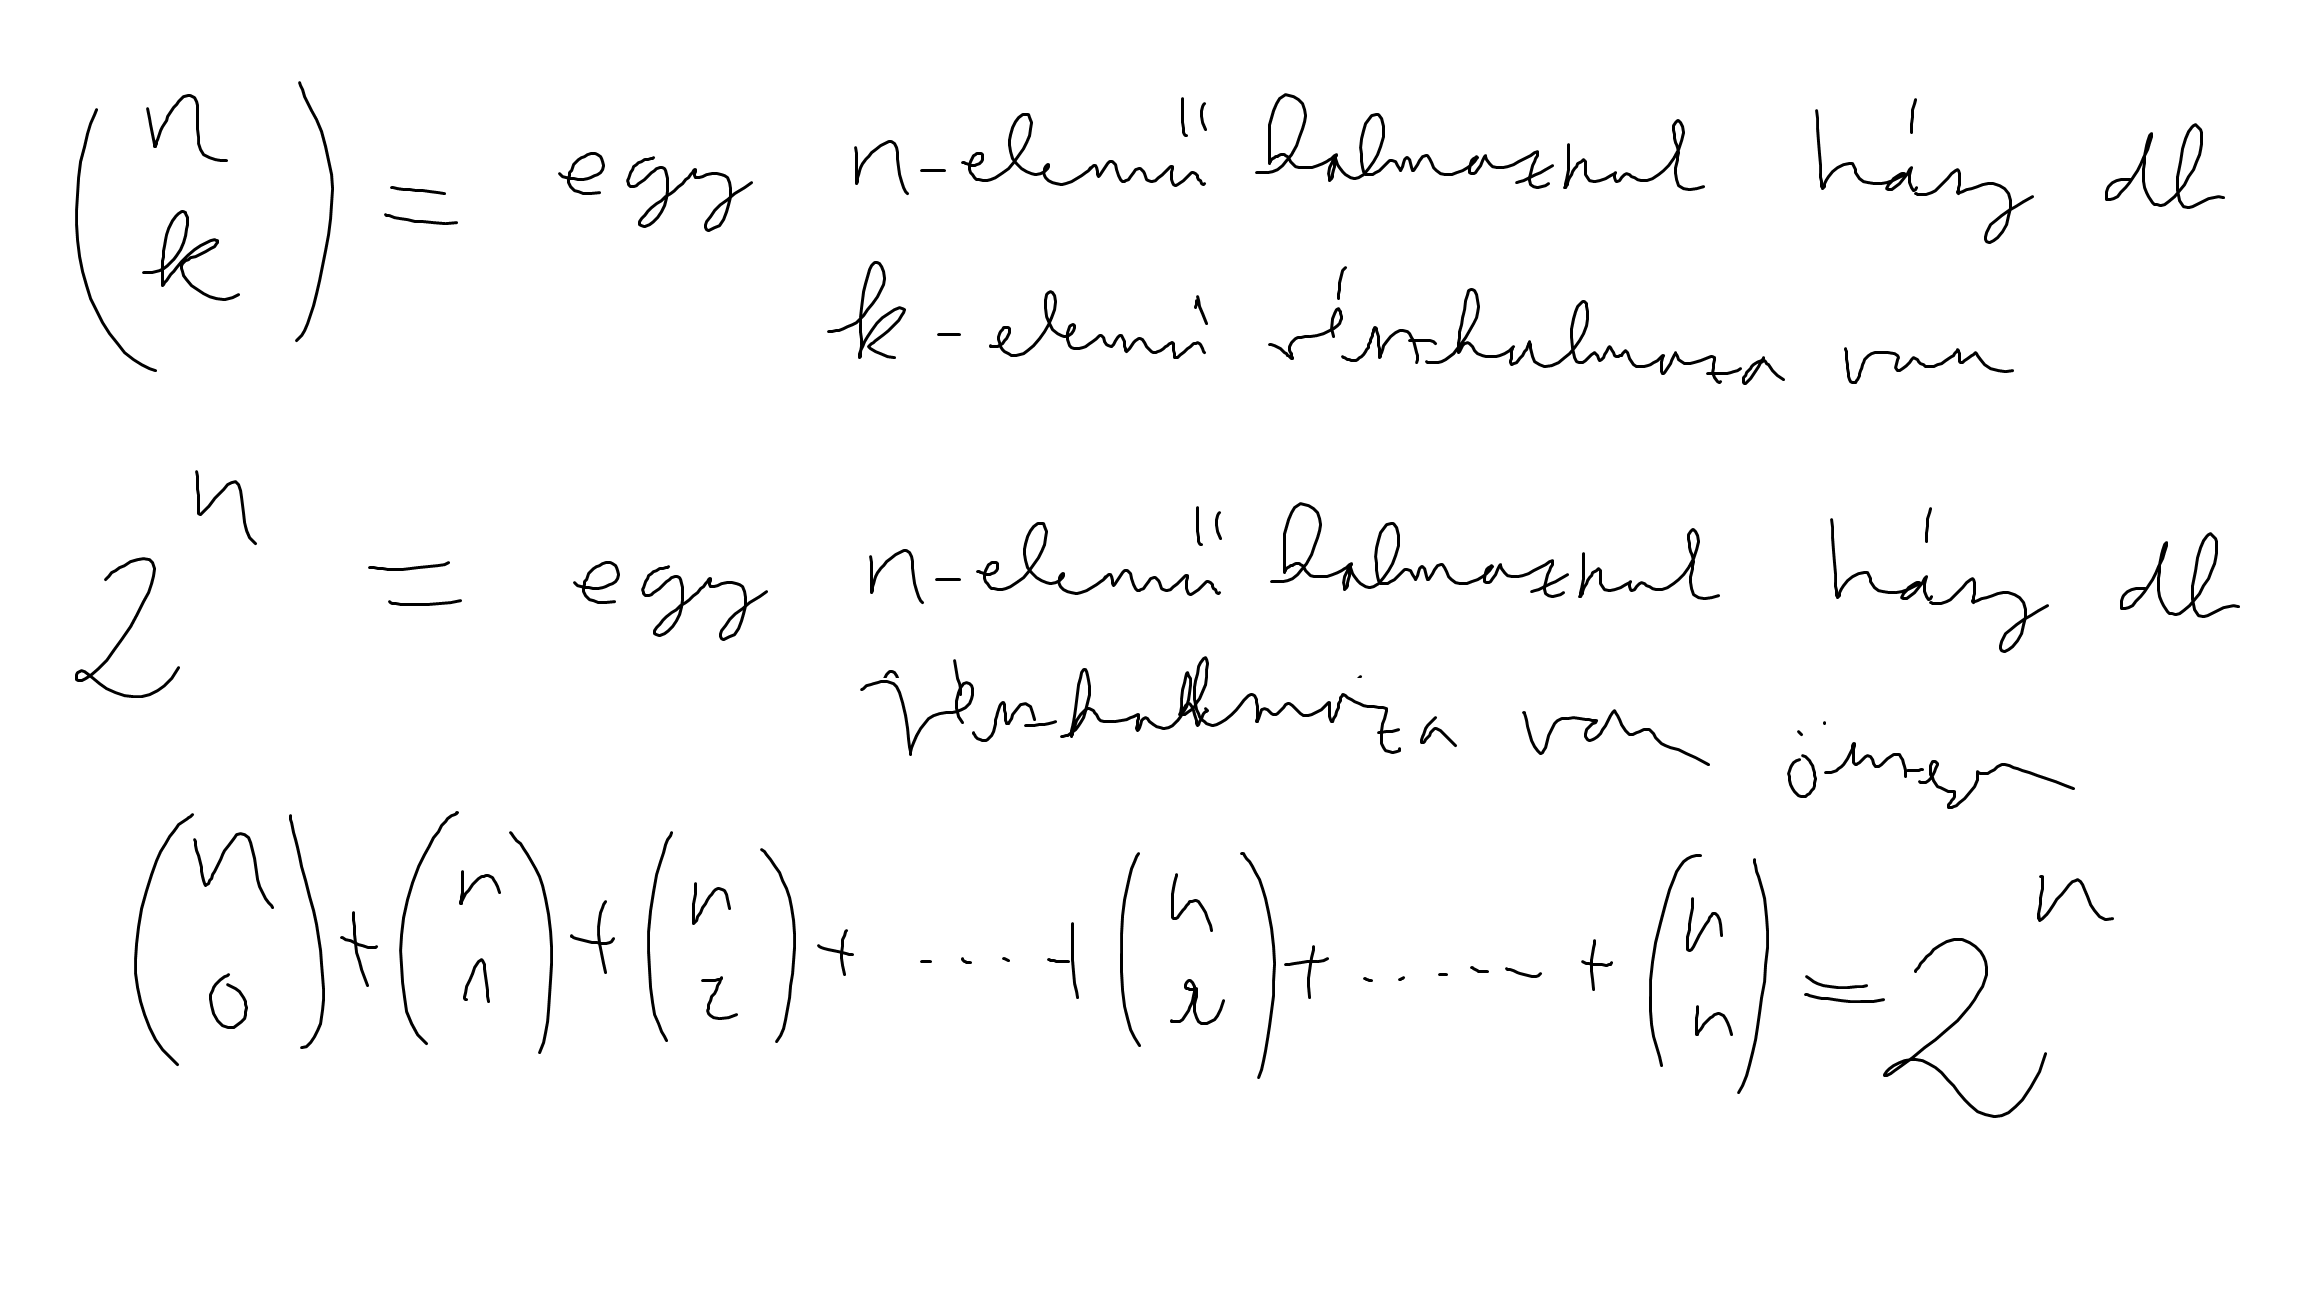 (n k) = egy n-elemű halmaznak hány db
k-elemű részhalmaza van
2^n = egy n-elemű halmaznak hány db
részhalmaza van összesen
(n 0) + (n 1) + (n 2) + .... + (n r) + ..... + (n n) = 2^n